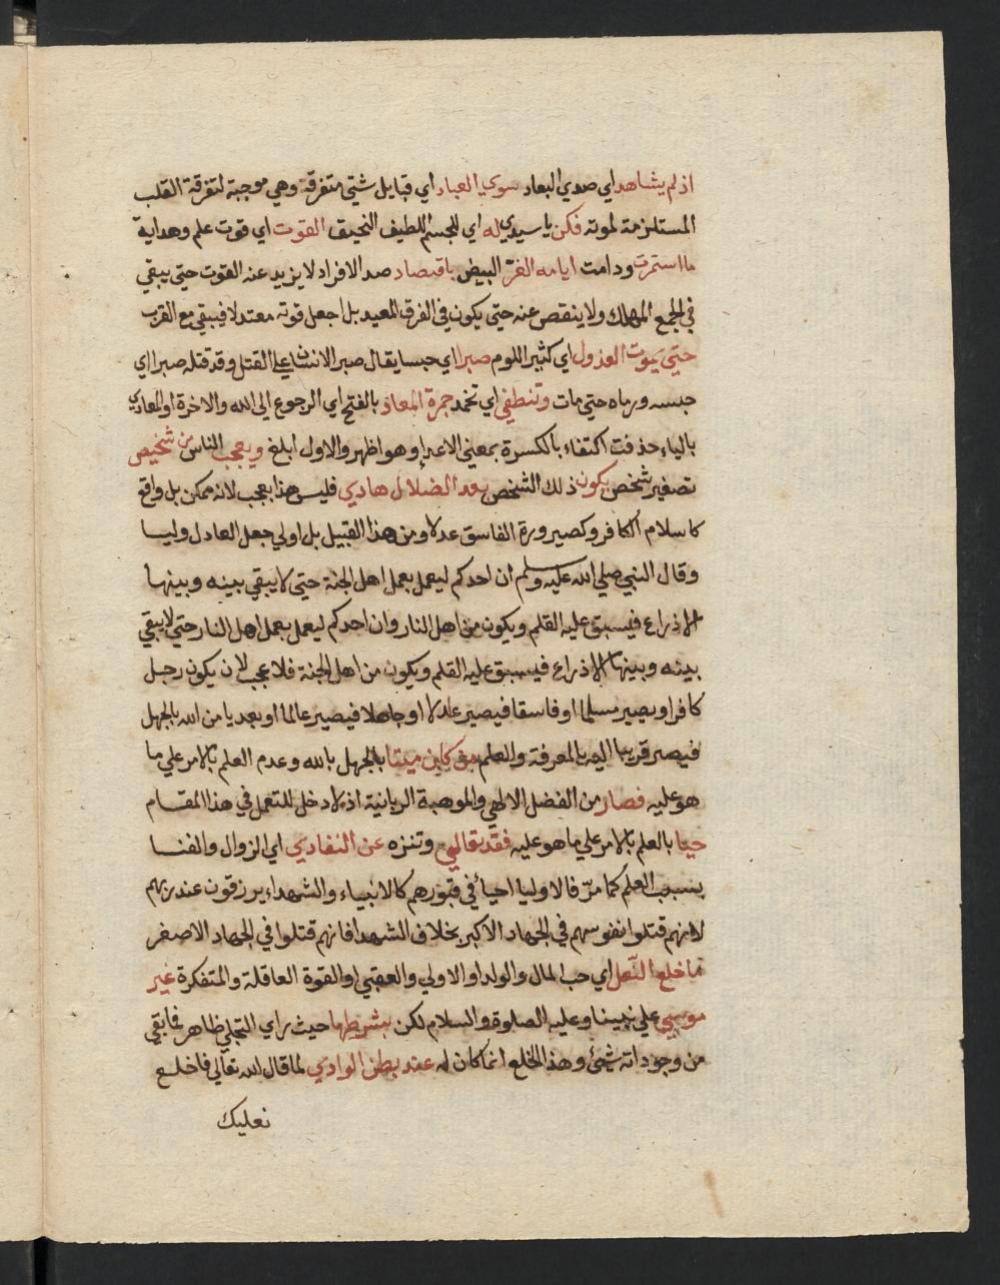 اذ لم يشاهد اي صدي البعاد سوي العباد اي قبايل شتي متفرقة وهي موجبة لتفرقة القلب
المستلزمة لموته فكن يا سيدي له اي للجسم اللطيف النحيف القوت اي قوت علم وهداية
ما استمرت ودامت ايامه الغر البيض باقتصاد صد الافراد لا يزيد عنه القوت حتي يبقي
في الجمع المهلك ولا ينقص عنه حتي يكون في الفرق المعيد بل اجعل قوته معتدلا فيبقي مع القرب
حتي يموت العذول اي كثير اللوم صبرا اي حبسا يقال صبر الانسان علي القتل وقد قتله صبرا اي
حبسه ورماه حتي مات وتنطفي اي تخمد جمرة المعاد بالفتح اي الرجوع الي الله والاخرة او المعادي
بالياء حذفت اكتفاء بالكسرة بمعني الاعداء وهو اظهر والاول ابلغ ويعجب الناس من شخيص
تصغير شخص يكون ذلك الشخص بعد الضلال هادي فليس هذا بعجب لانه ممكن بل واقع
كاسلام الكافر وكصيرورة الفاسق عدلا ومن هذا القبيل بل اولي جعل العادل وليا
وقال النبي صلي الله عليه وسلم ان احدكم ليعمل بعمل اهل الجنة حتي لا يبقي بينه وبينها
الا ذراع فيسبق عليه القلم ويكون من اهل النار وان احدكم ليعمل بعمل اهل النار حتي لا يبقي
بينه وبينها الا ذراع فيسبق عليه القلم ويكون من اهل الجنة فلا عجب لان يكون رجل
كافرا ويصير مسلما او فاسقا فيصير عادلا او جاهلا فيصير عالما او بعيدا من الله بالجهل
فيصير قريبا اليه بالمعرفة والعلم من كان ميتا بالجهل بالله وعدم العلم بالامر علي ما
هو عليه فصار من الفضل الالهي والموهبة الربانية اذ لا دخل للتعمل في هذا المقام
حيا بالعلم بالامر علي ما هو عليه فقد تعالي وتنزه عن النفادي اي الزوال والفنا
بسبب العلم كما مرّ فالاوليا احيا في قبورهم كالانبياء والشهداء يرزقون عند ربهم
لانهم قتلوا نفوسهم في الجهاد الاكبر بخلاف الشهدا فانهم قتلوا في الجهاد الاصغر
ما خلع النعل اي حب المال والولد او الاولي والعقبي او القوة العاقلة والمتفكرة غير
موسي علي نبينا وعليه الصلوة والسلام لكن بشرطها حيث راي التجلي ظاهر فما بقي
من وجود اته شيئ وهذا الخلع انما كان له عند بطن الوادي لما قال الله تعالي فاخلع
نعليك